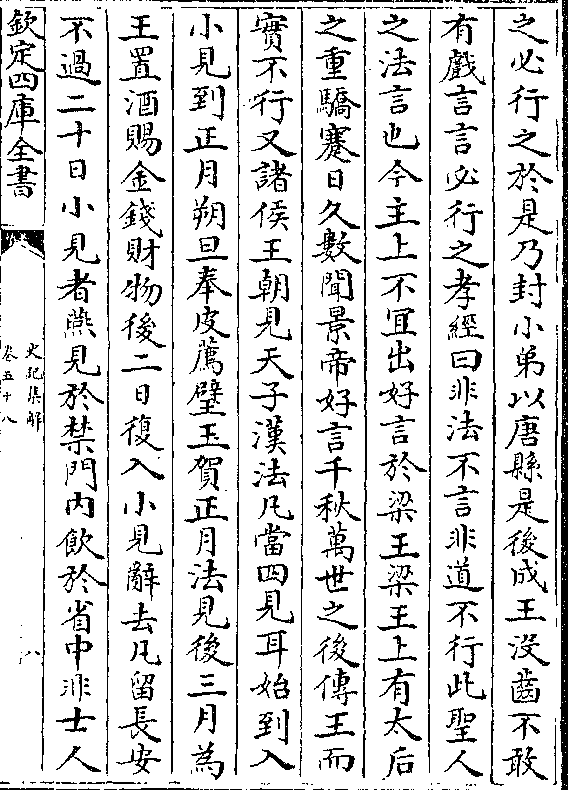 之必行之於是乃封小弟以唐縣是後成王没齒不敢
有戲言言必行之孝經曰非法不言非道不行此聖人
之法言也今主上不宜出好言於梁王梁王上有太后
之重驕蹇日久數聞景帝好言千秋萬世之後傳王而
實不行又諸侯王朝見天子漢法凡當四見耳始到入
小見到正月朔旦奉皮薦璧玉賀正月法見後三日為
王置酒賜金錢財物後二日復入小見辭去凡留長安
不過二十日小見者燕見於禁門内飲於省中非士人
欽定四庫全書
史記集解
卷五十八
八